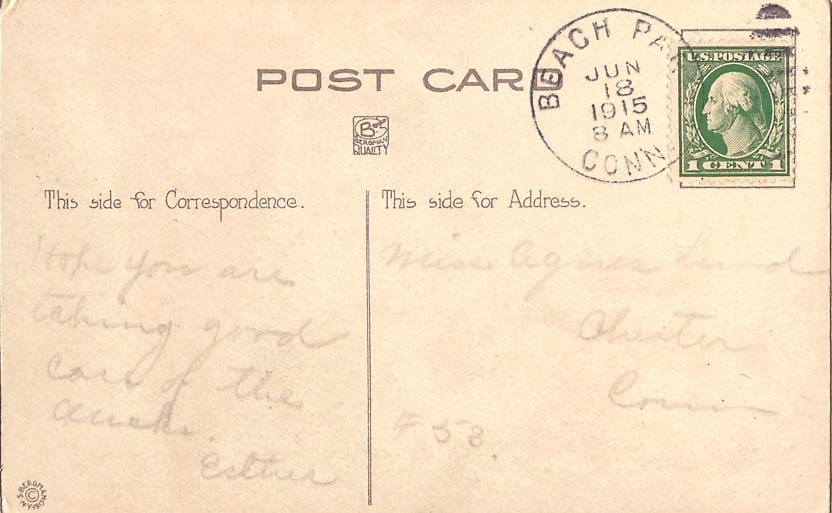 POST CARD
BEACH PA
JUN
18
1915
8 AM
CONN
U.S. POSTAGE
1 CENT 1
B
BERGMAN
QUALITY
This side for Correspondence.
Hope you are
taking good
care of the
ducks.
Esther
This side for Address.
Miss Agnes Lund
Chester
Conn
F 53
S. BERGMAN
©